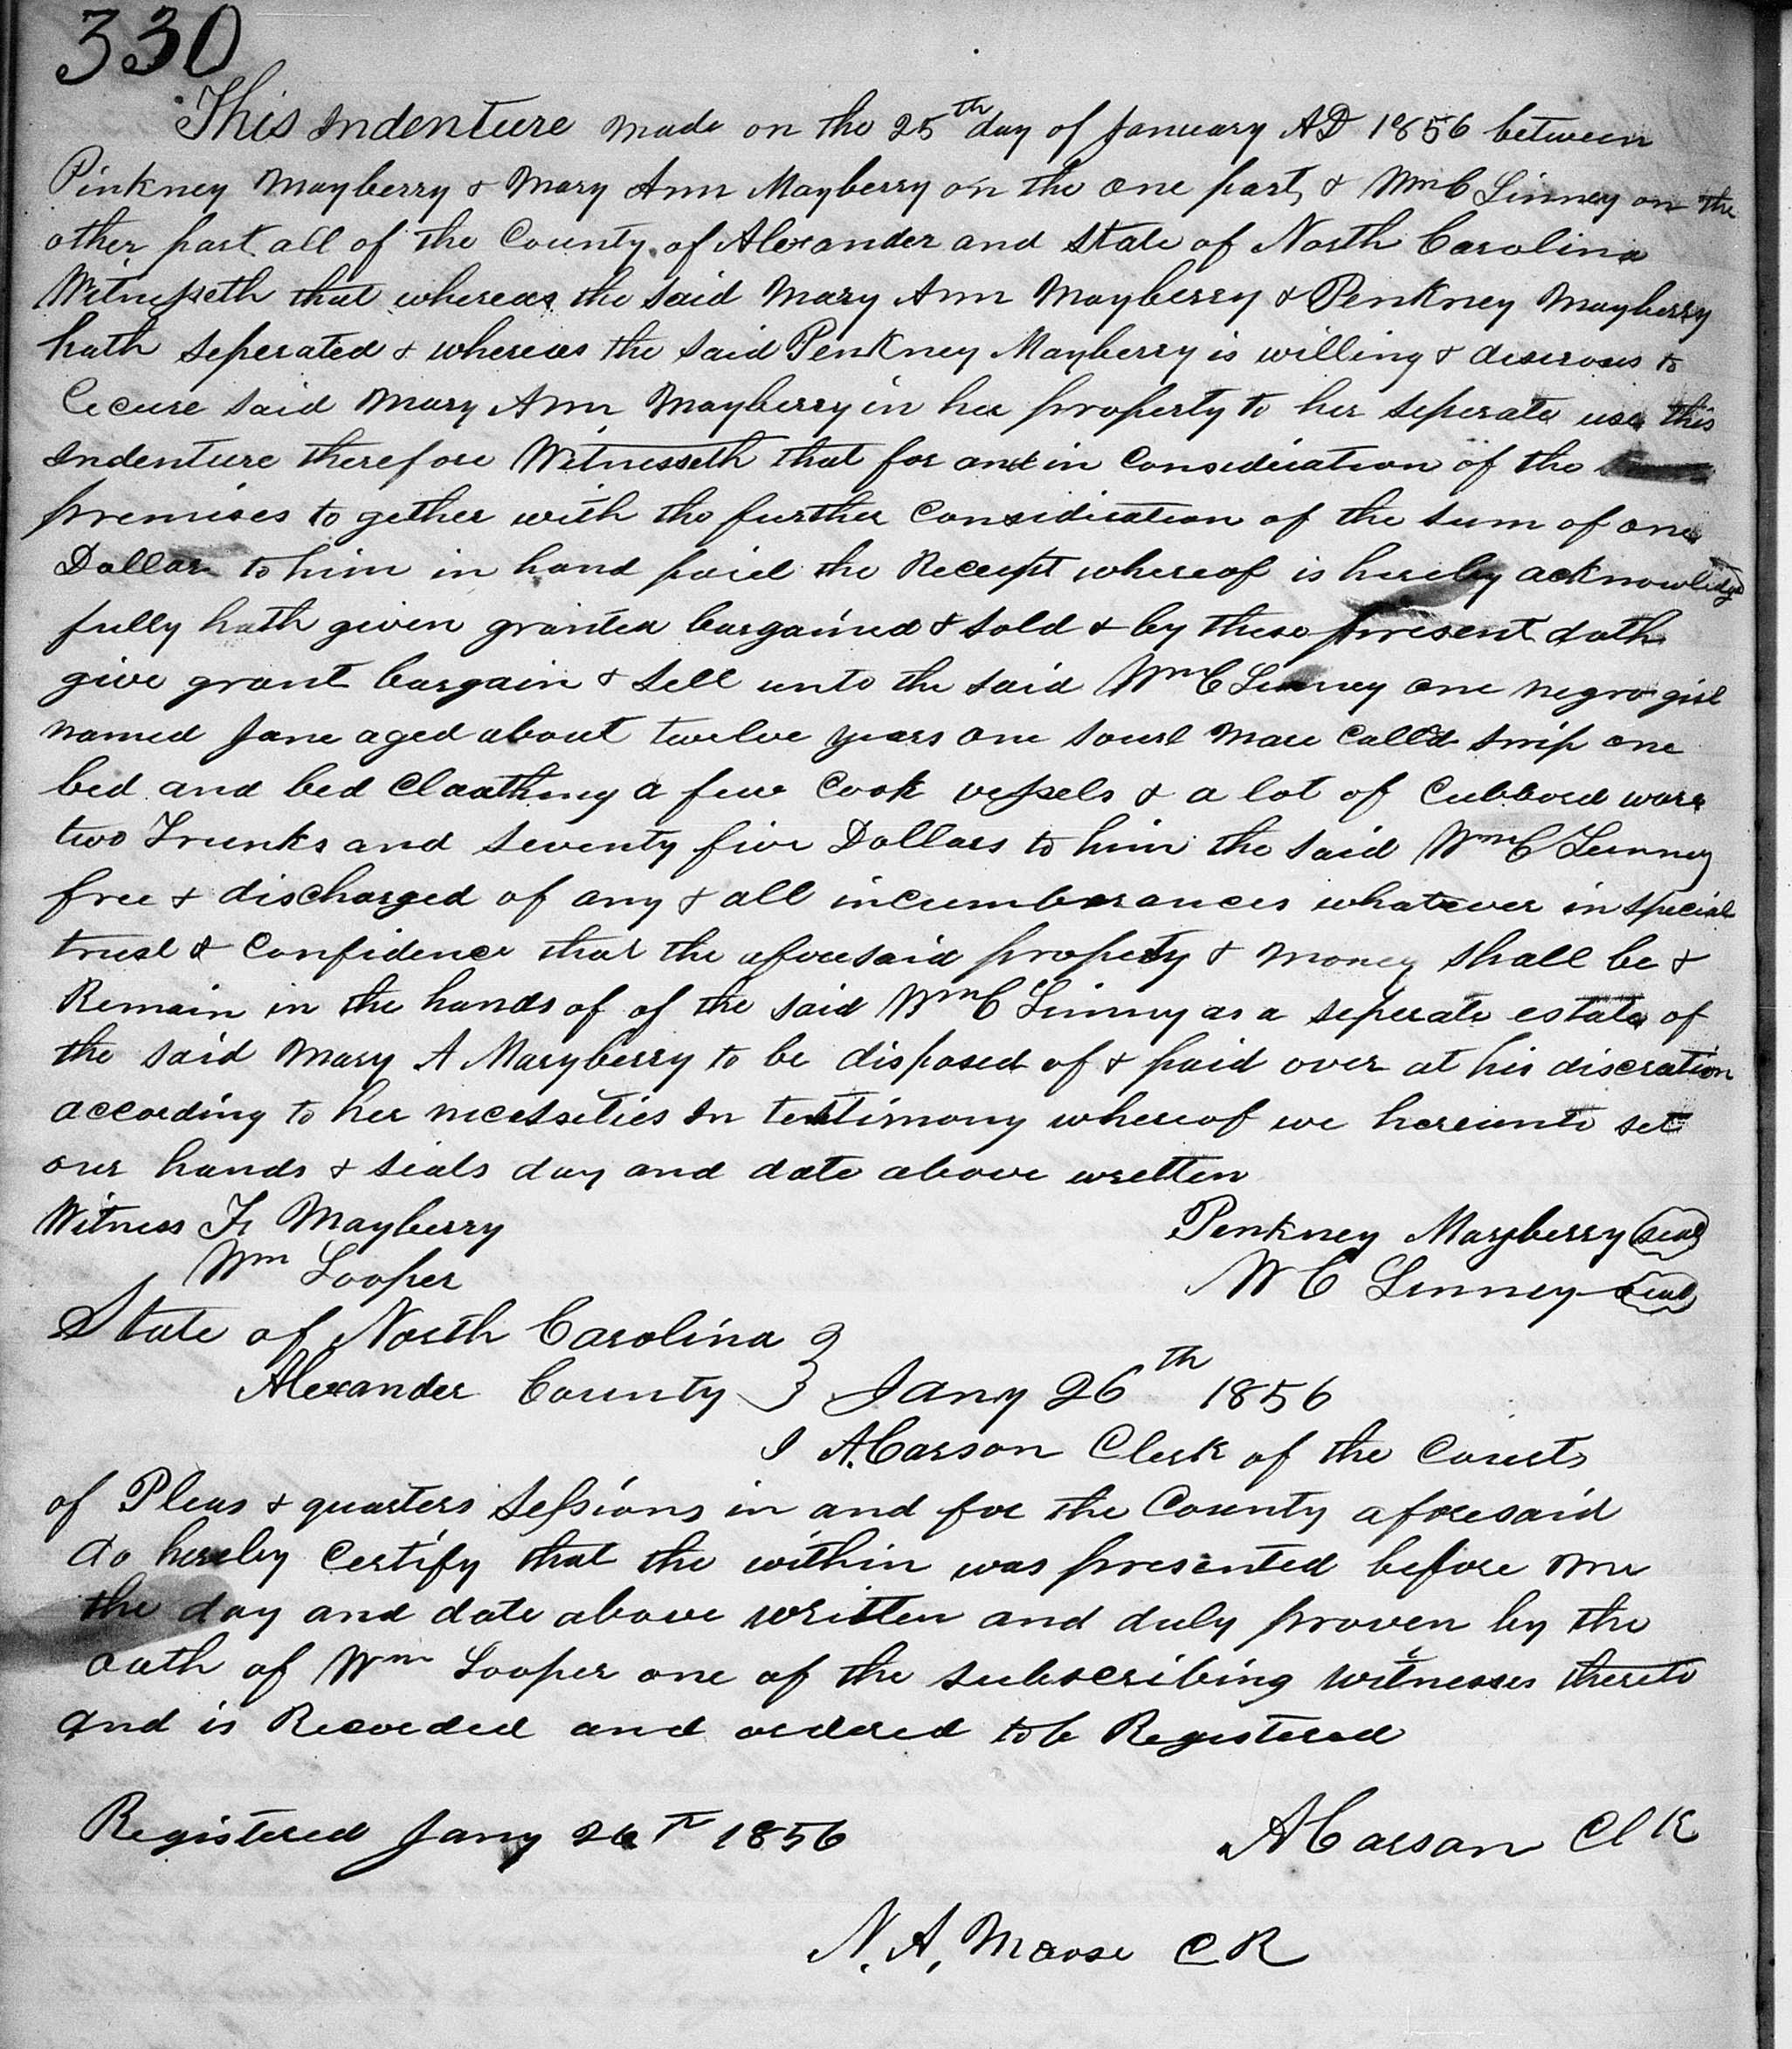 330
This Indenture made on the 25th day of January AD 1856 between
Pinkney Mayberry & Mary Ann Mayberry on the one part, & Wm C Linney on the
other part all of the County of Alexander and State of North Carolina
Witnesseth that whereas the said Mary Ann Mayberry & Penkney Mayberry
hath seperated & whereas the said Penkney Mayberry is willing & deserous to
Cecure said Mary Ann Mayberry in her property to her seperate use this
Indenture therefore Witnesseth that for and in Consideration of the
premises to gether with the further Consideration of the sum of one
Dollar to him in hand paid the Receipt whereof is hereby acknowledged
fully hath given granted bargained & sold & by these present doth
give grant bargain & sell unto the said Wm C Linney one negro girl
named Jane aged about twelve years one sourl mare Called Snip one
bed and bed Cloathing a few Cook vessels & a lot of Cubboard ware
two Trunks and seventy five Dollars to him the said Wm C Linney
free & discharged of any & all incumberances whatever in special
trust & Confidence that the aforesaid property & money shall be &
Remain in the hands of of the said Wm C Linney as a seperate estate of
the said Mary A Maryberry to be disposed of & paid over at his discration
according to her necessities In testimony whereof we hereunto set
our hands & seals day and date above written
Witness Fr Mayberry Penkney Mayberry seal
Wm Looper W C Linney seal
State of North Carolina }
Alexander County } Jany 26th 1856
I A. Carson Clerk of the Courts
of Pleas & quarters Sessions in and for the County aforesaid
do hereby Certify that the within was presented before me
the day and date above written and duly proven by the
oath of Wm Looper one of the subscribing witnesses thereto
and is Recorded and ordered to be Registered
Registered Jany 26th 1856 A Carson Clk
N. A. Moose C R